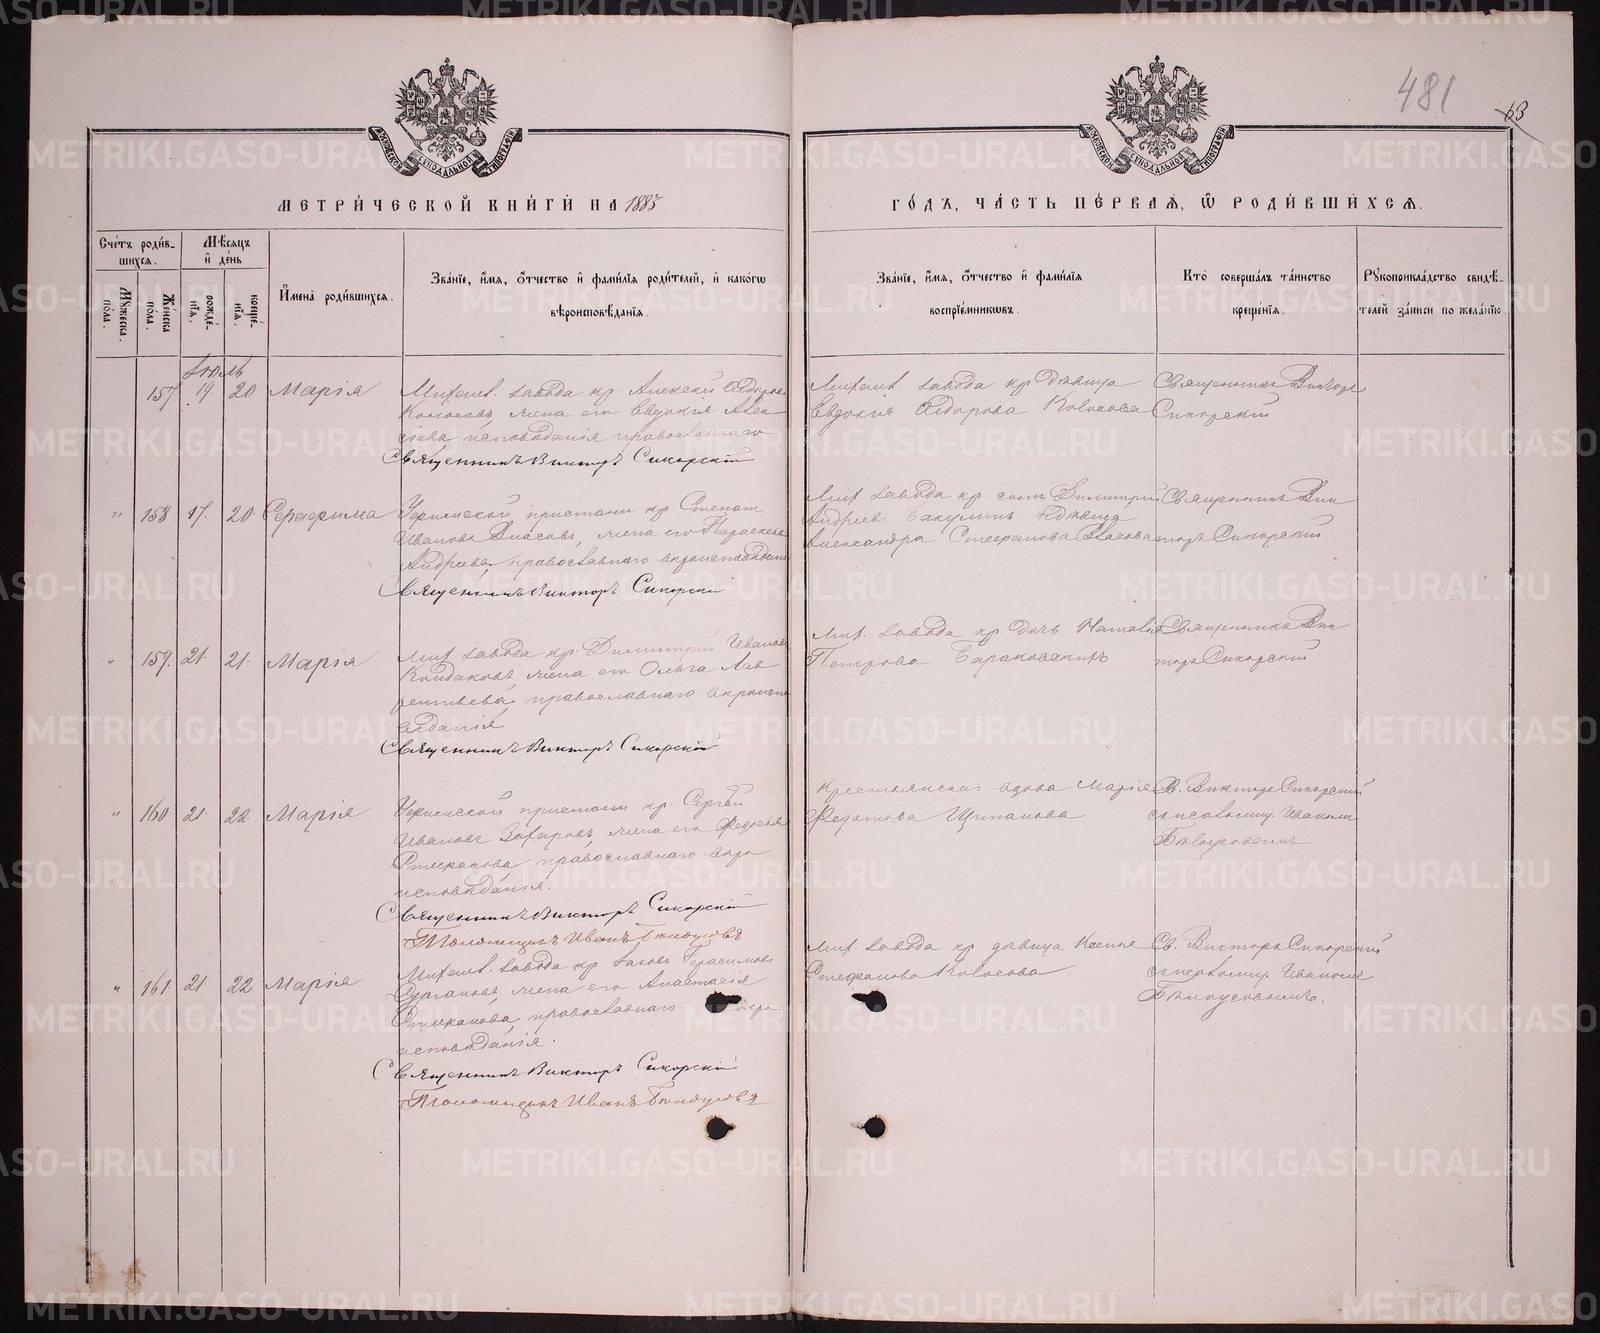 481
63
МЕТРИЧЕСКОЙ КНИГИ НА 1885
ГОДЪ, ЧАСТЬ ПЕРВАЯ, Ѡ РОДИВШИХСЯ.
Счетъ родив-
шихся.
Мѣсяцъ
и день
Мужеска
пола.
Женска
пола.
рожде-
нія.
креще-
нія.
Имена родившихся.
Званіе, имя, отчество и фамилія родителей, и какогѡ
вѣроисповѣданія.
Званіе, имя, отчество и фамилія
воспріемниковъ.
Кто совершалъ таинство
крещенія.
Рукоприкладство свидѣ-
телей записи по желанію.
Іюль
157 19. 20 Марія
Михаил. завода кр. Алексей
Колосовъ, жена его Евдокия Алек-
сіева исповѣданія православнаго
Священникъ Викторъ Сикорскій
Михаил. завода кр. дѣвица
Евдокія Колосова
Священникъ Викторъ
Сикорскій
" 158 17. 20. Серафима
пристани кр. Степан
Иванов Власовъ, жена его Параскева
Андреева, православнаго вероисповѣдания
Священникъ Викторъ Сикорскій
Мих. завода кр. сынъ Димитрий
Андреевъ Бакулинъ дѣвица
Александра Стефанова Власова
Священникъ Вик
торъ Сикорский
" 159. 21. 21. Марія
Мих. завода кр. Димитрий Иванов
Кондаковъ, жена его Ольга Лав
рентьева, православнаго вероиспо
ведания
Священникъ Викторъ Сикорскій
Мих. завода кр. дочь Наталья
Петрова Бараковскихъ
Священникъ Вик
торъ Сикорский
" 160 21. 22. Марія
пристани кр. Сергей
Ивановъ Захаровъ, жена его Федосья
Стефанова, православнаго веро
исповѣданія.
Священникъ Викторъ Сикорскій
Псаломщикъ Иванъ Бѣлоусовъ
Крестьянская вдова Марія
Федотова Щипанова
Св. Викторъ Сикорский
с псаломщ. Иваномъ
Бѣлоусовымъ
" 161. 21. 22. Марія
Михаил. завода кр. Яковъ Герасимовъ
Сургановъ, жена его Анастасія
Стефанова, православнаго веро
исповѣданія.
Священникъ Викторъ Сикорскій
Псаломщикъ Иванъ Бѣлоусовъ
Мих. завода кр. дѣвица Ксенія
Стефанова Колосова
Св. Викторъ Сикорский
Иваномъ
Бѣлоусовымъ.
METRIKI.GASO-URAL.RU